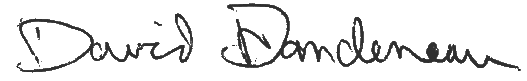 David Dandeneau